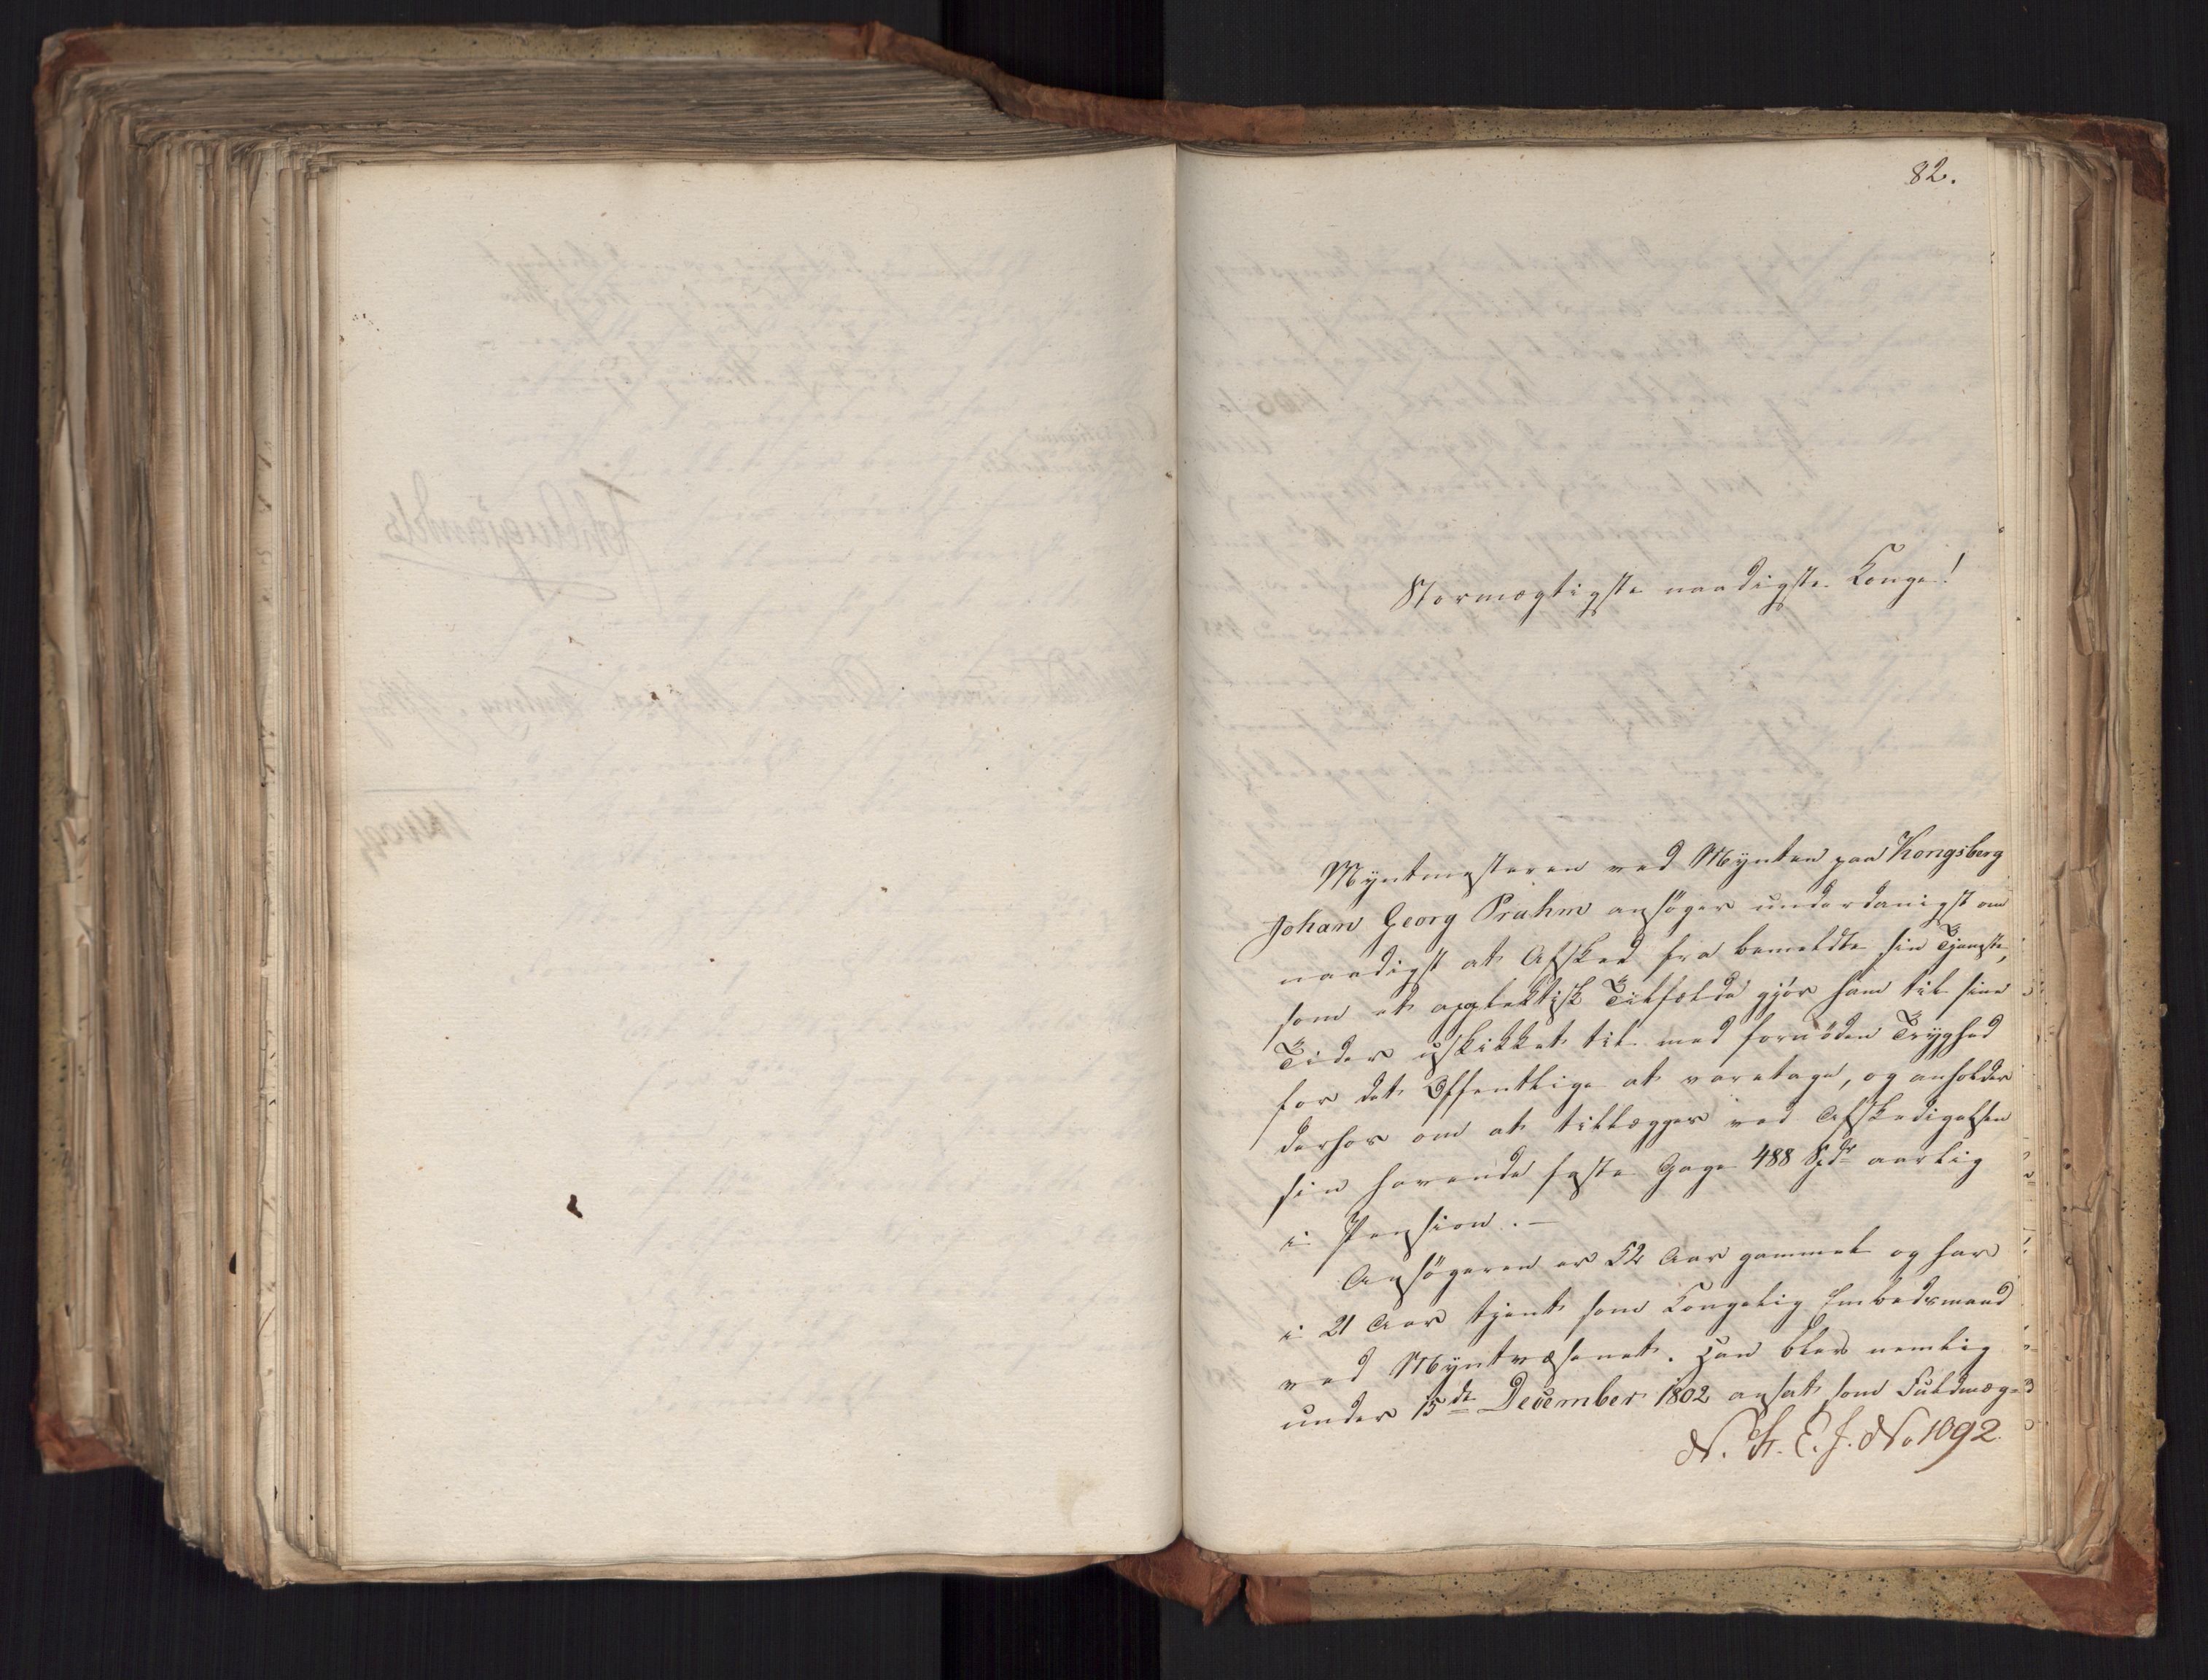 82.
Stormægtigste naadigste Konge!
Myntmesteren ved Mynten paa Kongsberg
Johan Georg Prahm ansøger underdanigst om
naadigst at Afsked fra bemeldte sin Tjeneste,
som et applektisk Tilfælde gjör ham til sine
Tider uskikket til med fornöden Tryghed
for det Offentlige at varetage, og anholder
derhos om at tillægges ved Afskedigelsen
sin havende faste Gage 488 Spdr aarlig
i Pension. —
Ansögeren er 52 Aar gammel og har
i 21 Aar tjent som Kongelig Embedsmand
ved Myntvæsenet. Han blev nemlig
under 15de December 1802 ansat som Fuldmæg-
N. St. E. J. No 1092.